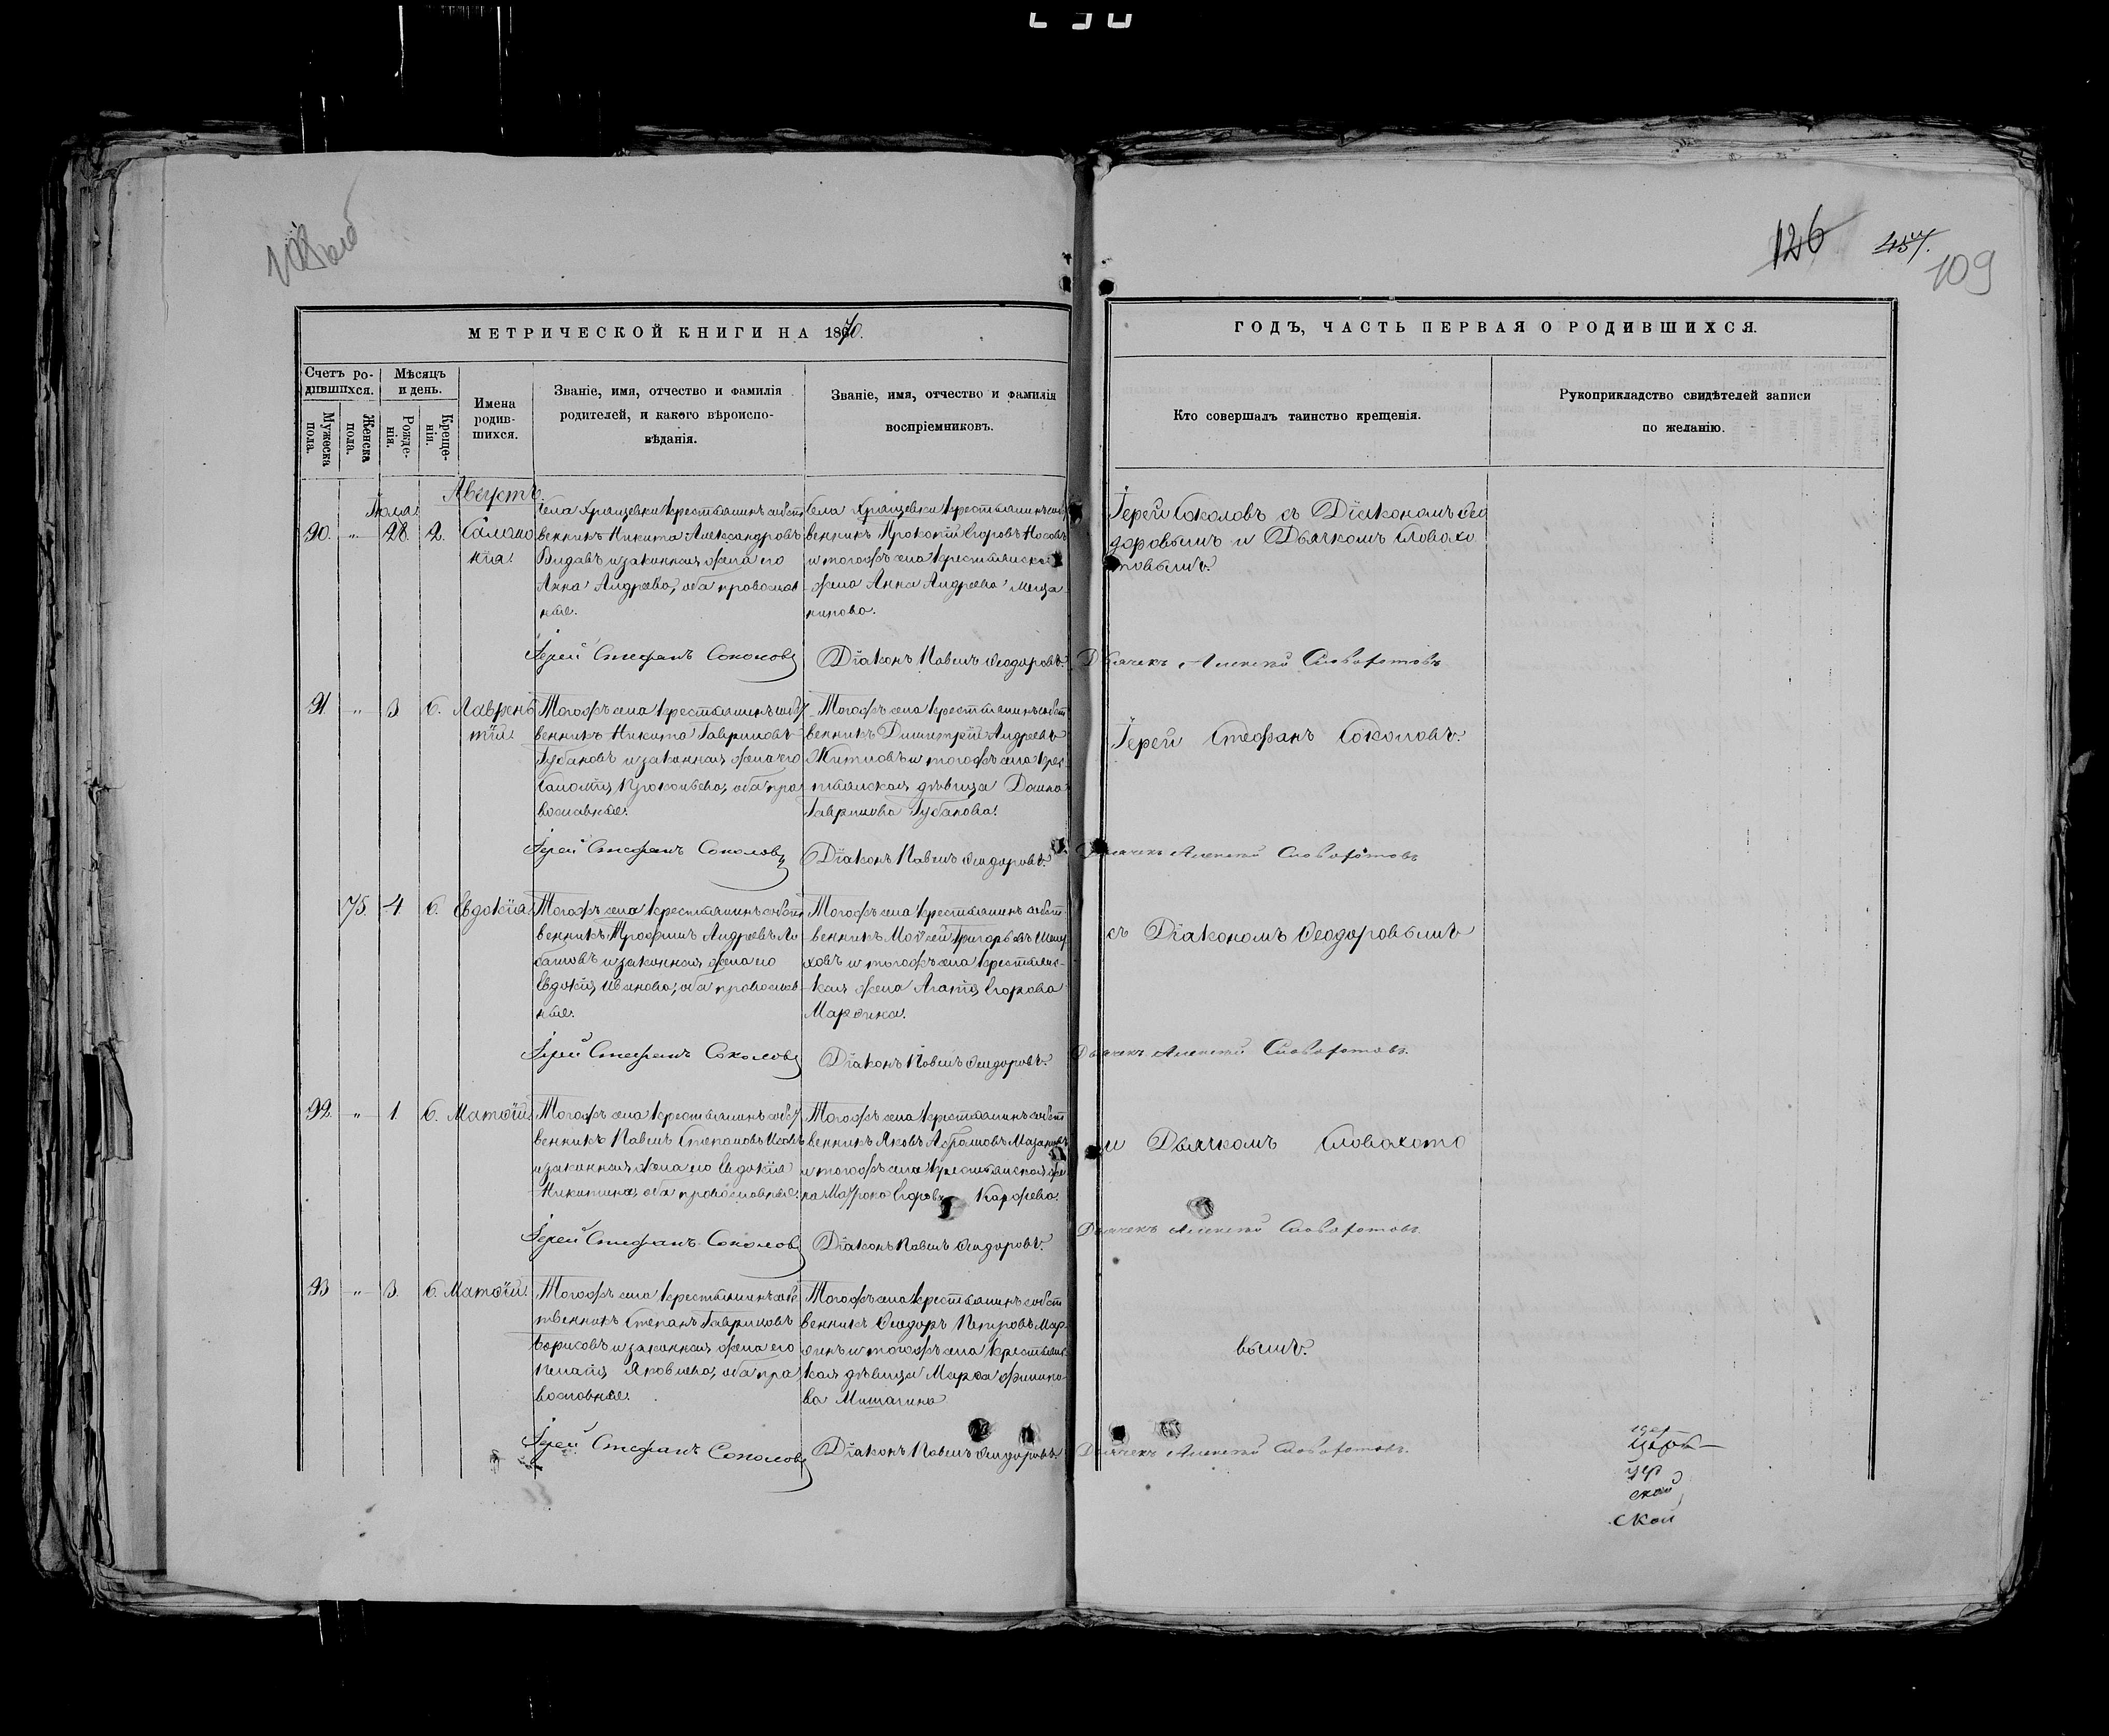 126 457. 109
МЕТРИЧЕСКОЙ КНИГИ НА 1870.
ГОДЪ, ЧАСТЬ ПЕРВАЯ О РОДИВШИХСЯ.
Счетъ ро-
дившихся.
Мужеска
пола.
Женска
пола.
Мѣсяцъ
и день.
Рожде-
нія.
Креще-
нія.
Имена
родив-
шихся.
Званіе, имя, отчество и фамилія
родителей, и какого вѣроиспо-
вѣданія.
Званіе, имя, отчество и фамилія
воспріемниковъ.
Кто совершалъ таинство крещенія.
Рукоприкладство свидѣтелей записи
по желанію.
Августъ.
90. " 28. 2.
Села Хрящевки крестьянинъ собст
венникъ Никита Александровъ
и законная жена его
Анна Андреева, оба православ
ные.
Села Хрящевки крестьянинъ соб
венникъ Прокопій Егоровъ Носовъ
и тогожъ села крестьянска
жена Анна Андреева
Іерей Соколовъ съ Діакономъ Ѳео
доровымъ и Дьячкомъ
Іерей Стефанъ Соколовъ
Діаконъ Павелъ Ѳеодоровъ.
Дьячекъ Алексей
91. " 3 6. Лаврен
тій.
Тогожъ села крестьянинъ собст
венникъ Никита Гавриловъ
Губановъ и законная жена его
Прокопьева, оба пра
вославные.
Тогожъ села крестьянинъ собст
венникъ Димитрій Андреевъ
и тогожъ села крес
тьянская дѣвица
Гаврилова Губанова.
Іерей Стефанъ Соколовъ.
Іерей Стефанъ Соколовъ
Діаконъ Павелъ Ѳеодоровъ.
Дьячекъ Алексей
75. 4. 6. Евдокія.
Тогожъ села крестьянинъ собств
венникъ Трофимъ Андреевъ Ло
и законная жена его
Евдокія Иванова, оба православ
ные.
Тогожъ села крестьянинъ собст
венникъ Моѵсей Григорьевъ
ховъ и тогожъ села крестьянс
кая жена Агапія Егорова
Марѳина.
съ Діакономъ Ѳеодоровымъ
Іерей Стефанъ Соколовъ
Діаконъ Павелъ Ѳеодоровъ.
Дьячекъ Алексей
92. " 1. 6. Матѳій.
Тогожъ села крестьянинъ собст
венникъ Павелъ Степановъ
и законная жена его Евдокія
Никитина, оба православные.
Тогожъ села крестьянинъ собст
венникъ Яковъ Абрамовъ
и тогожъ села крестьянская же
на Матрона Егорова
и Дьячкомъ
Іерей Стефанъ Соколовъ
Діаконъ Павелъ Ѳеодоровъ.
Дьячекъ Алексей
93 " 3. 6. Матѳій.
Тогожъ села крестьянинъ собс
твенникъ Степанъ Гавриловъ
Борисовъ и законная жена его
Пелагія Яковлева, оба пра
вославные.
Тогожъ села крестьянинъ собст
венникъ Ѳеодоръ Петровъ Мар
ѳинъ и тогожъ села крестьянс
кая дѣвица Марѳа Филипо
ва
вымъ.
Іерей Стефанъ Соколовъ
Діаконъ Павелъ Ѳеодоровъ.
Дьячекъ Алексей
ской
ской